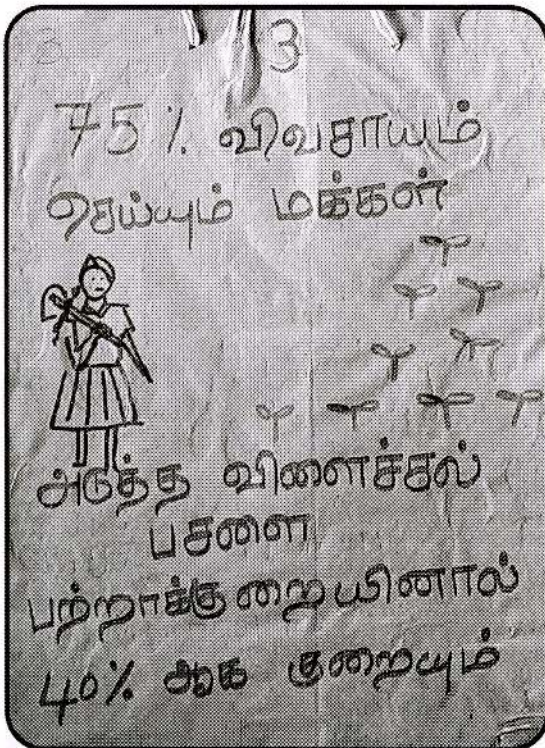 3 3
75% விவசாயம்
செய்யும் மக்கள்
அடுத்த விளைச்சல்
பசளை
பற்றாக்குறையினால்
40% ஆக குறையும்